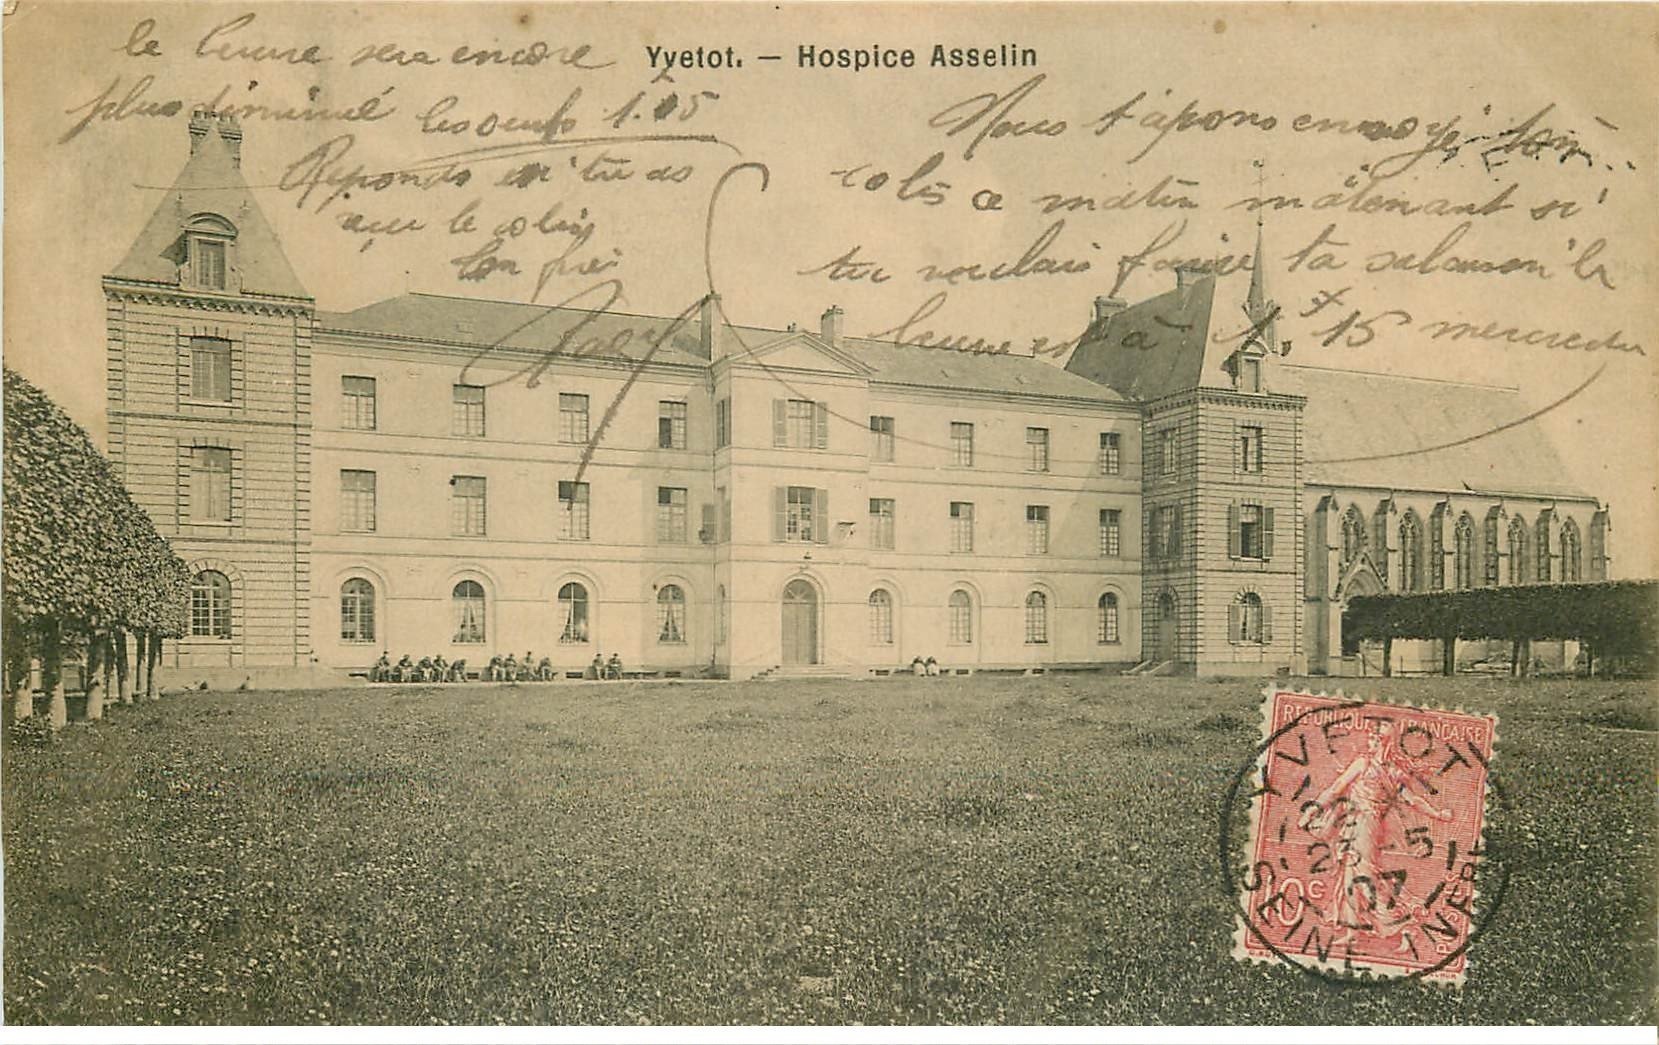 Yvetot. — Hospice Asselin
Nous t'avons envoyé ton
colis ce matin mâtenant si
tu voulais faire ta salaison le
beurre est à 1,15 mercredi
le beurre sera encore
plus diminué les oeufs 1.05
Reponds si tu as
reçu le colis
ton frère
REPUBLIQUE FRANÇAISE
10c
YVETOT
22
23 -5
07
SEINE INFRE